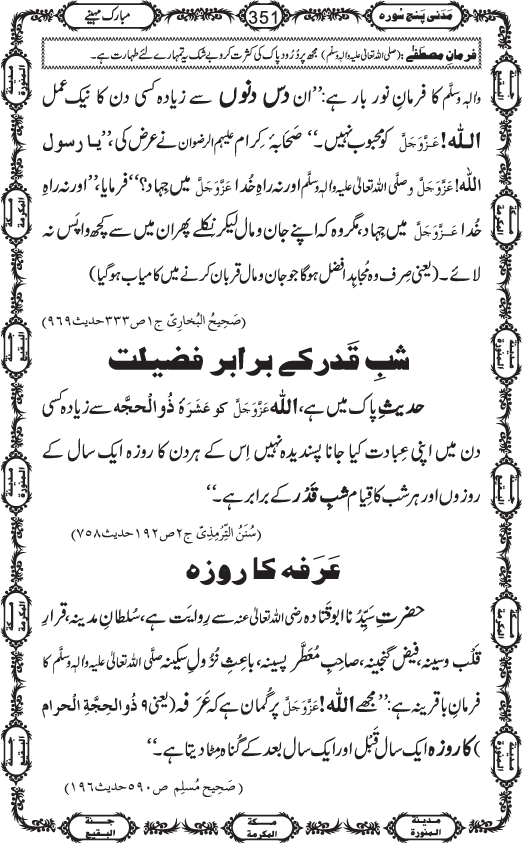 مَدَنی پنج سورہ
351
مبارک مہینے
فرمانِ مصطفٰے : (صلی اللہ تعالیٰ علیہ والہ وسلّم) مجھ پر دُرُود پاک کی کثرت کرو بے شک یہ تمہارے لئے طہارت ہے۔
والہٖ وسلَّم کا فرمانِ نور بار ہے:’’ان دس دنوں سے زیادہ کسی دن کا نیک عمل
اللہ! عَزَّوَجَلَّ کو محبوب نہیں۔‘‘ صَحابۂ کِرام علیہم الرضوان نے عرض کی،’’یا رسول
اللہ! عَزَّوَجَلَّ و صلَّی اللہ تعالیٰ علیہ والہٖ وسلَّم اور نہ راہِ خُدا عَزَّوَجَلَّ میں جہاد؟‘‘ فرمایا،’’اور نہ راہِ
خُدا عَزَّوَجَلَّ میں جہاد، مگر وہ کہ اپنے جان و مال لیکر نکلے پھر ان میں سے کچھ واپَس نہ
لائے۔(یعنی صِرف وہ مُجاہِد افضل ہوگا جو جان و مال قربان کرنے میں کامیاب ہوگیا)
(صَحِیحُ البُخارِیّ ج۱ص۳۳۳حدیث۹۶۹)
شبِ قَدر کے برابر فضیلت
حدیثِ پاک میں ہے، اللہ عَزَّوَجَلَّ کو عَشَرَۂ ذُوالْحِجَّہ سے زیادہ کسی
دن میں اپنی عِبادت کیا جانا پسندیدہ نہیں اِس کے ہر دن کا روزہ ایک سال کے
روزوں اور ہر شب کا قِیام شبِ قَدْر کے برابر ہے۔‘‘
(سُنَنُ التِّرمِذِیّ ج۲ص۱۹۲حدیث۷۵۸)
عَرَفہ کا روزہ
حضرتِ سَیِّدُنا ابو قَتادہ رضی اللہ تعالیٰ عنہ سے رِوایَت ہے، سُلطانِ مدینہ، قرارِ
قَلْب و سینہ، فیض گنجینہ، صاحِبِ مُعَطَّر پسینہ، باعِثِ نُزُولِ سکینہ صلَّی اللہ تعالیٰ علیہ والہٖ وسلَّم کا
فرمانِ باقرینہ ہے:’’مجھے اللہ! عَزَّوَجَلَّ پر گُمان ہے کہ عَرَفہ (یعنی ۹ ذُوالحِجَّۃِ الْحرام
) کا روزہ ایک سال قَبْل اور ایک سال بعد کے گُناہ مِٹا دیتا ہے۔‘‘
(صَحِیح مُسلِم ص۵۹۰حدیث۱۹۶)
مدینۃ المنورۃ
مکۃ المکرمۃ
جنۃ البقیع
مدینۃ المنورۃ
مکۃ المکرمۃ
جنۃ البقیع
جنۃ البقیع
مکۃ المکرمۃ
مدینۃ المنورۃ
جنۃ البقیع
مکۃ المکرمۃ
مدینۃ المنورۃ
جنۃ البقیع
مکۃ المکرمۃ
مدینۃ المنورۃ